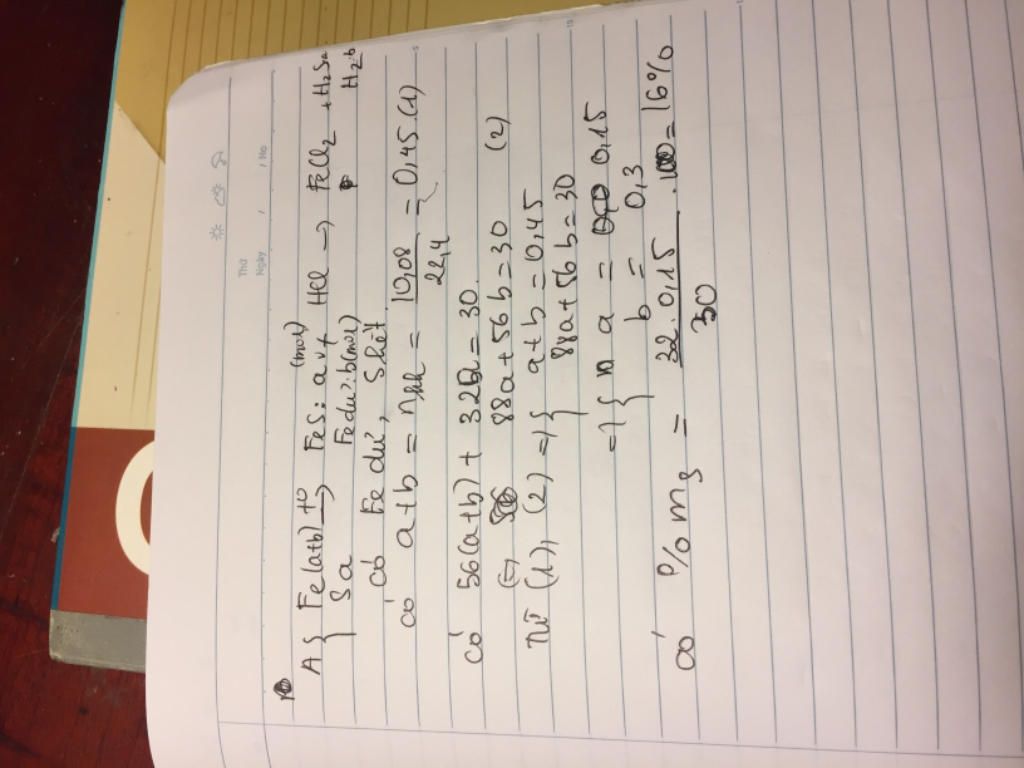 Thứ
Ngày / / No
A { Fe (a+b) t° → FeS: a (mol) + HCl → FeCl2 + H2S a
S a Fe dư: b (mol) H2: b
có Fe dư, S hết
có a+b = nhh = 10,08 / 22,4 = 0,45 (1)
có 56(a+b) + 32a = 30
(=) 88a + 56b = 30 (2)
từ (1), (2) => { a+b = 0,45
88a + 56b = 30
=> { a = 0,15
b = 0,3
có % mS = 32.0,15 / 30 .100 = 16%